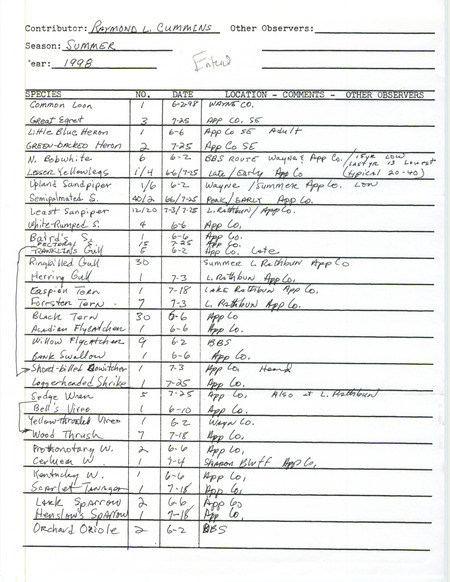 Contributor: RAYMOND L. CUMMINS Other Observers:
Season: SUMMER
Year: 1998 Entered
SPECIES NO. DATE LOCATION - COMMENTS - OTHER OBSERVERS
Common Loon 1 6-2-98 WAYNE CO.
Great Egret 3 7-25 APP CO. SE
Little Blue Heron 1 6-6 App Co SE Adult
GREEN-BACKED Heron 2 7-25 App Co SE
N. Bobwhite 6 6-2 BBS ROUTE Wayne & App Co. / 15 yr LOW LAST YR 13 LOWEST (typical 20-40)
Lesser Yellowlegs 1/4 6-6/7-25 Late/Early App Co
Upland Sandpiper 1/6 6-2 Wayne /Summer App Co. LOW
Semipalmated S. 40/2 6-6/7-25 PEAK/EARLY App Co.
Least Sanpiper 12/20 7-3/7-25 L. Rathbun/App Co.
White-Rumped S. 4 6-6 App Co,
Baird's S. 1 6-6 App Co.
Pectoral S. 15 7-25 App Co.
FRANKLIN'S Gull 5 6-2 App Co, Late
Ringbilled Gull 30 Summer L Rathbun App Co
Herring Gull 1 7-3 L. Rathbun App Co,
Caspian Tern 1 7-18 LAKE Rathbun App Co.
Forsters Tern 7 7-3 L. Rathbun App Co.
Black Tern 30 6-6 App Co
Acadian Flycatcher 1 6-6 App Co.
Willow Flycatcher 9 6-2 BBS
Bank Swallow 1 6-6 App Co.
Short-billed Dowitcher 1 7-3 App Co, Heard
Loggerheaded Shrike 1 7-25 App Co.
Sedge Wren 5 7-25 App Co, Also at L. Rathbun
Bell's Vireo 1 6-10 App Co.
Yellow-throated Vireo 1 6-2 Wayn Co.
Wood Thrush 7 7-18 App Co,
Prothonotary W. 2 6-6 App Co,
Cerulean W. 1 Sharon Bluff App Co,
Kentucky W. 1 6-6 App Co,
Scarlet Tanager 1 7-18 App Co,
Lark Sparrow 2 6-6 App Co
Henslow's Sparrow 1 7-18 App Co,
Orchard Oriole 2 6-2 BBS